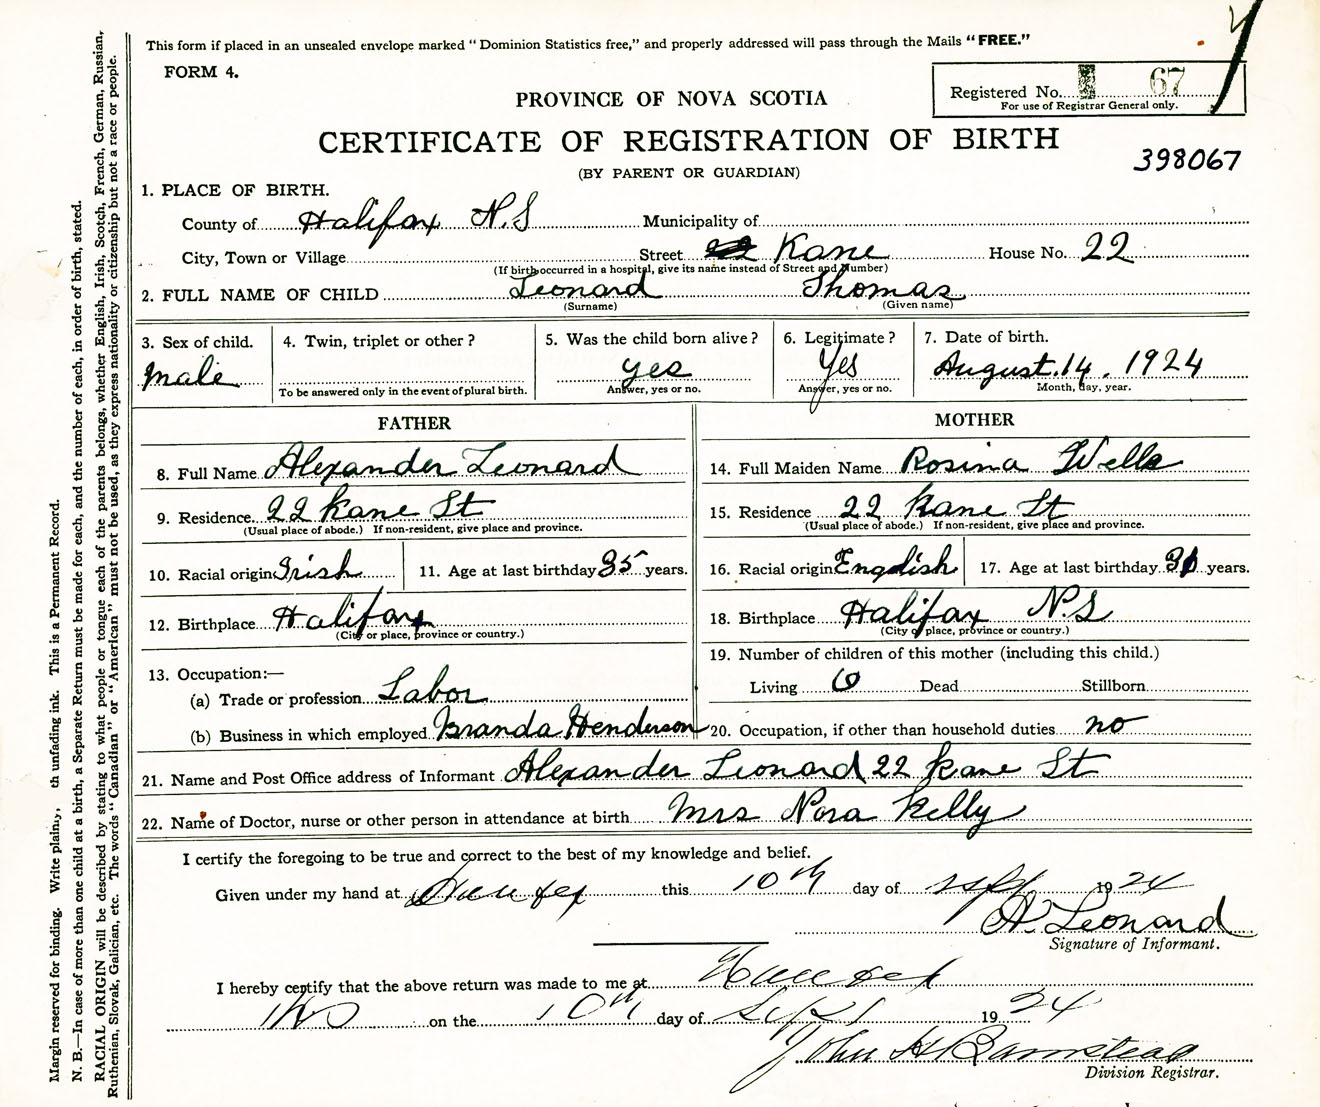 This form if placed in an unsealed envelope marked "Dominion Statistics free," and properly addressed will pass through the Mails "FREE."
FORM 4.
PROVINCE OF NOVA SCOTIA
Registered No. 67
For use of Registrar General only.
CERTIFICATE OF REGISTRATION OF BIRTH
398067
(BY PARENT OR GUARDIAN)
1. PLACE OF BIRTH.
County of Halifax N.S Municipality of
City, Town or Village Street Kane House No. 22
(If birth occurred in a hospital, give its name instead of Street and Number)
2. FULL NAME OF CHILD Leonard Thomas
(Surname) (Given name)
3. Sex of child. 4. Twin, triplet or other? 5. Was the child born alive? 6. Legitimate? 7. Date of birth.
male yes Yes August. 14. 1924
To be answered only in the event of plural birth. Answer, yes or no. Answer, yes or no. Month, day, year.
FATHER MOTHER
8. Full Name Alexander Leonard 14. Full Maiden Name Rosina Wells
9. Residence 22 Kane St 15. Residence 22 Kane St
(Usual place of abode.) If non-resident, give place and province. (Usual place of abode.) If non-resident, give place and province.
10. Racial origin Irish 11. Age at last birthday 35 years. 16. Racial origin English 17. Age at last birthday years.
12. Birthplace Halifax 18. Birthplace Halifax N.S
(City or place, province or country.) (City or place, province or country.)
13. Occupation:— 19. Number of children of this mother (including this child.)
(a) Trade or profession Labor Living 6 Dead Stillborn
(b) Business in which employed Branda Henderson 20. Occupation, if other than household duties no
21. Name and Post Office address of Informant Alexander Leonard 22 Kane St
22. Name of Doctor, nurse or other person in attendance at birth Mrs Nora Kelly
I certify the foregoing to be true and correct to the best of my knowledge and belief.
Given under my hand at Halifax this 10th day of Sept 1924
A. Leonard
Signature of Informant.
I hereby certify that the above return was made to me at Halifax
on the 10th day of Sept 1924
John H Barnstead
Division Registrar.
Margin reserved for binding. Write plainly, th unfading ink. This is a Permanent Record.
N. B.—In case of more than one child at a birth, a Separate Return must be made for each, and the number of each, in order of birth, stated.
RACIAL ORIGIN will be described by stating to what people or tongue each of the parents belongs, whether English, Irish, Scotch, French, German, Russian,
Ruthenian, Slovak, Galician, etc. The words "Canadian" or "American" must not be used, as they express nationality or citizenship but not a race or people.